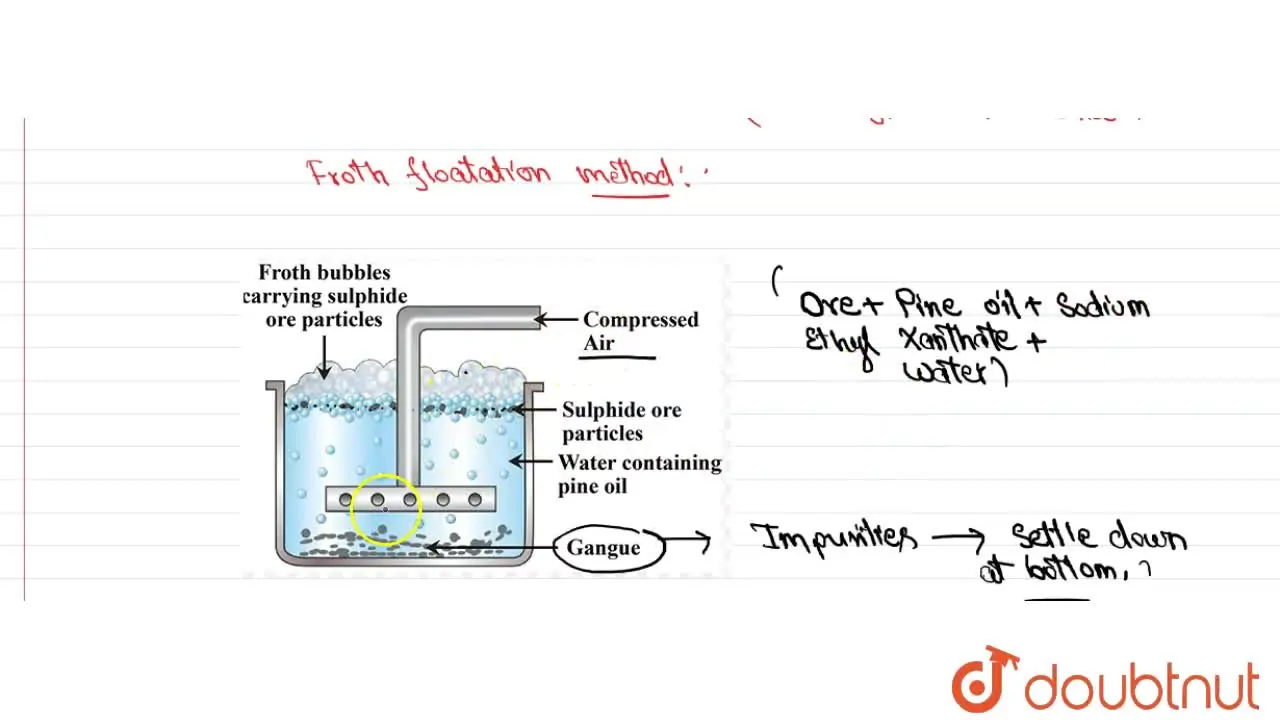 Froth floatation method:-
Froth bubbles
carrying sulphide
ore particles
Compressed
Air
Sulphide ore
particles
Water containing
pine oil
Gangue
(
Ore + Pine oil + Sodium
Ethyl Xanthate +
water)
Impurities → Settle down
at bottom.
doubtnut